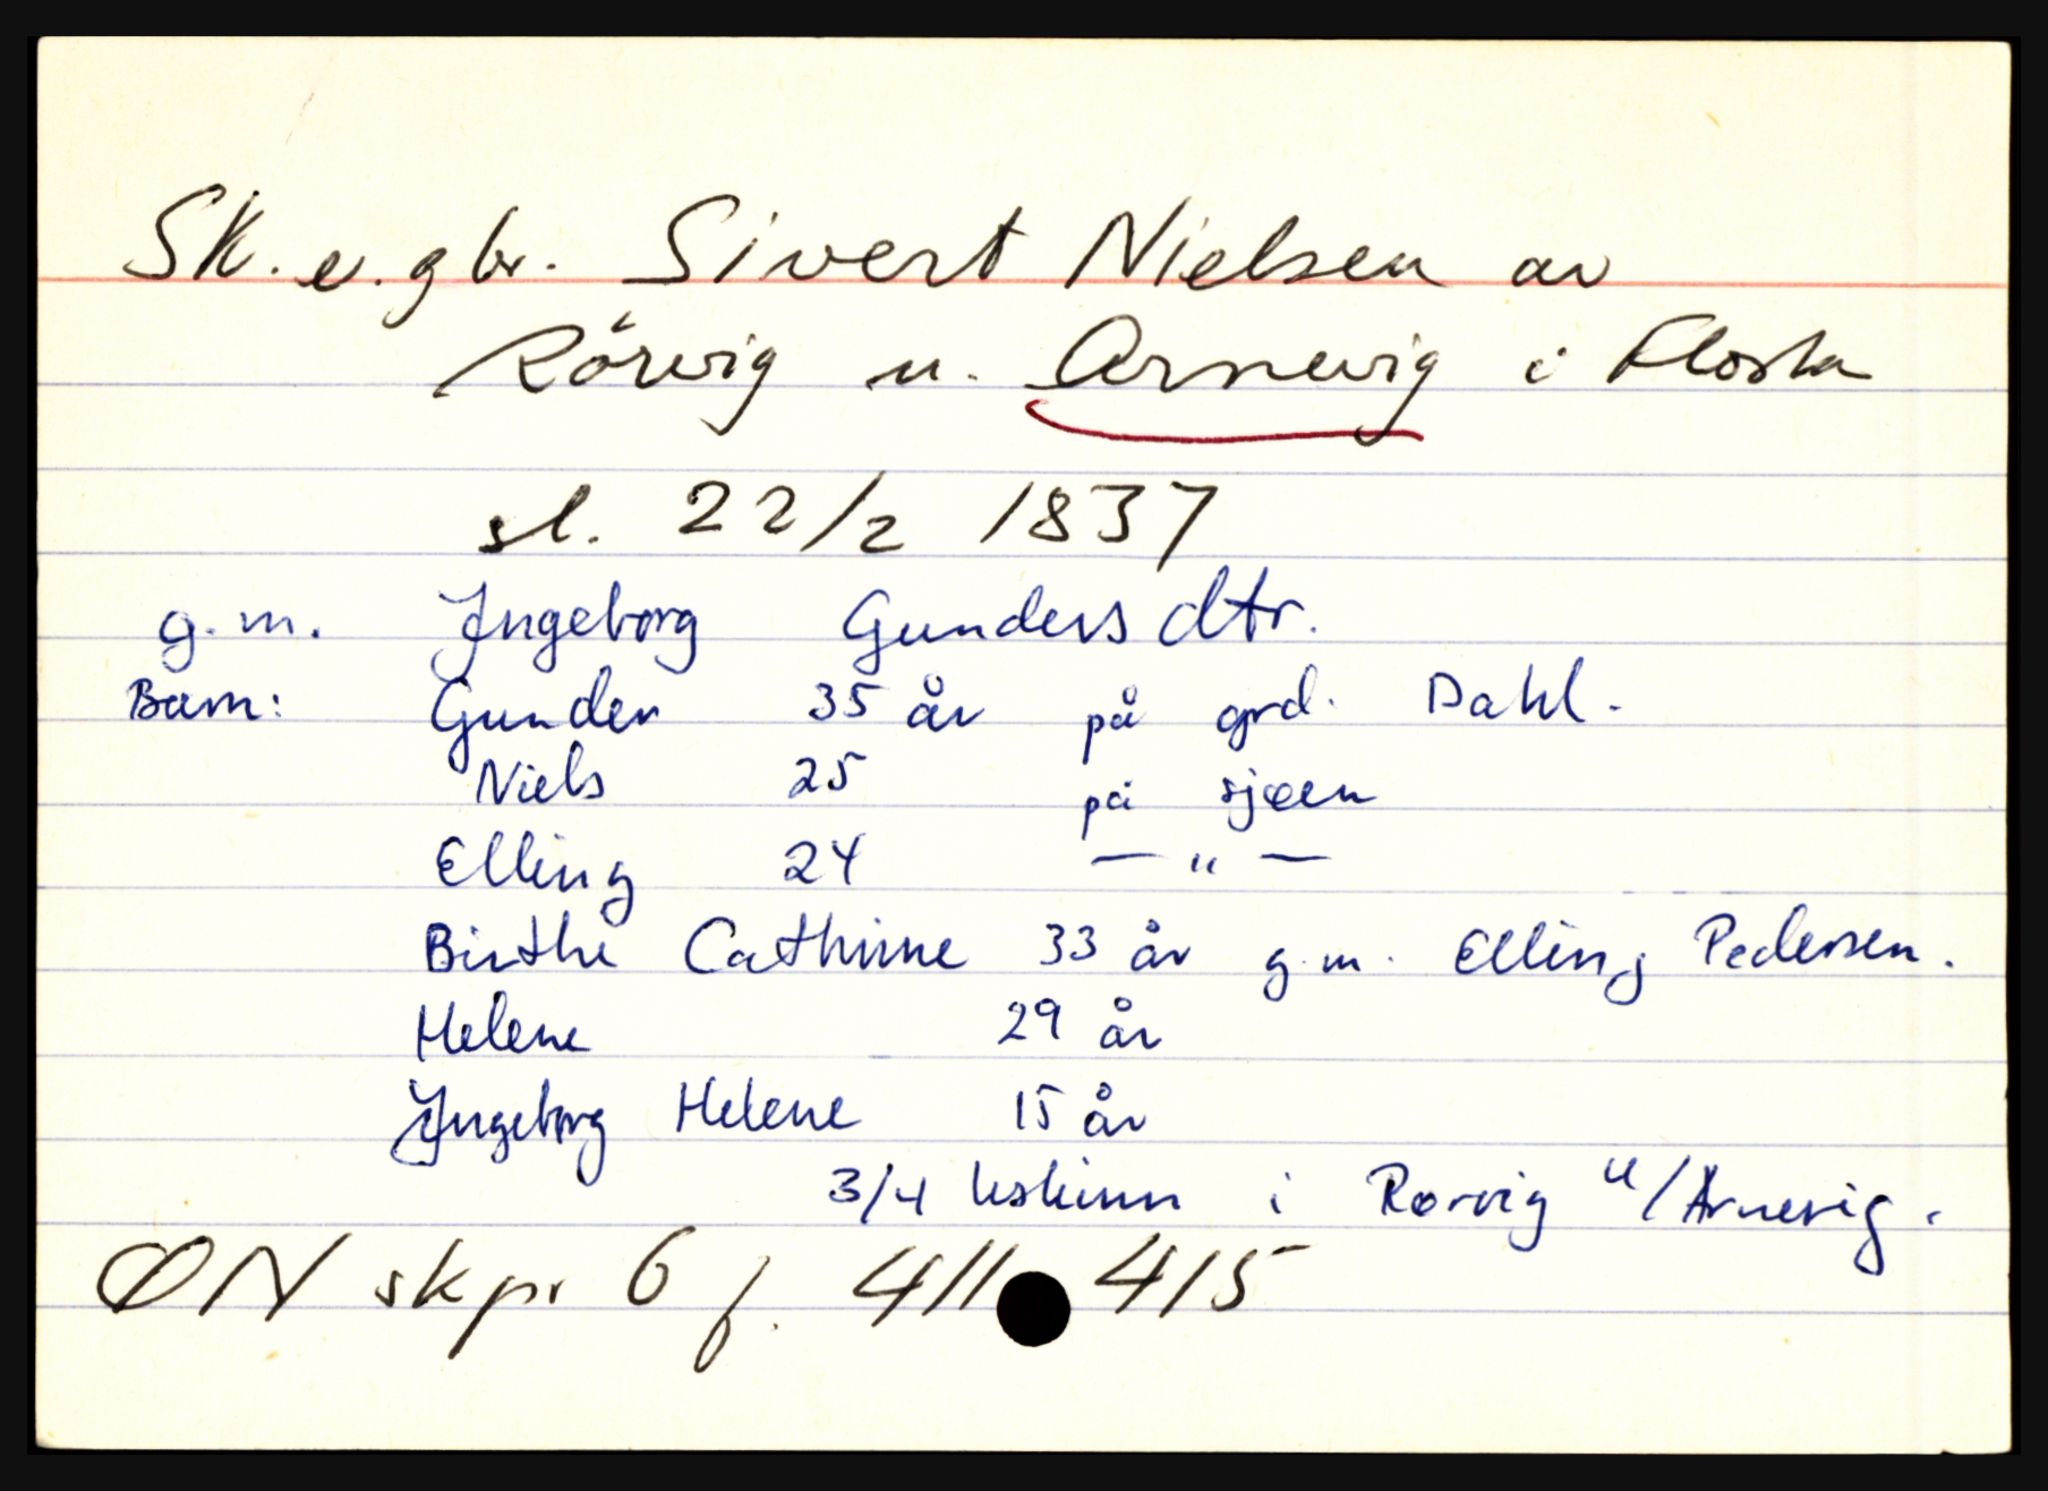 Sk. e. gbr. Sivert Nielsen av
Rörvig u. Arnevig i Flosta
sl. 22/2 1837
g.m. Ingeborg Gundersdtr.
Barn: Gunder 35 år på grd. Dahl.
Niels 25 på sjøen
Elling 24 — " —
Birthe Cathrine 33 år g.m. Elling Pedersen.
Helene 29 år
Ingeborg Helene 15 år
3/4 kskinn i Rørvig u/Arnevig.
ØN skpr 6 f. 411 415